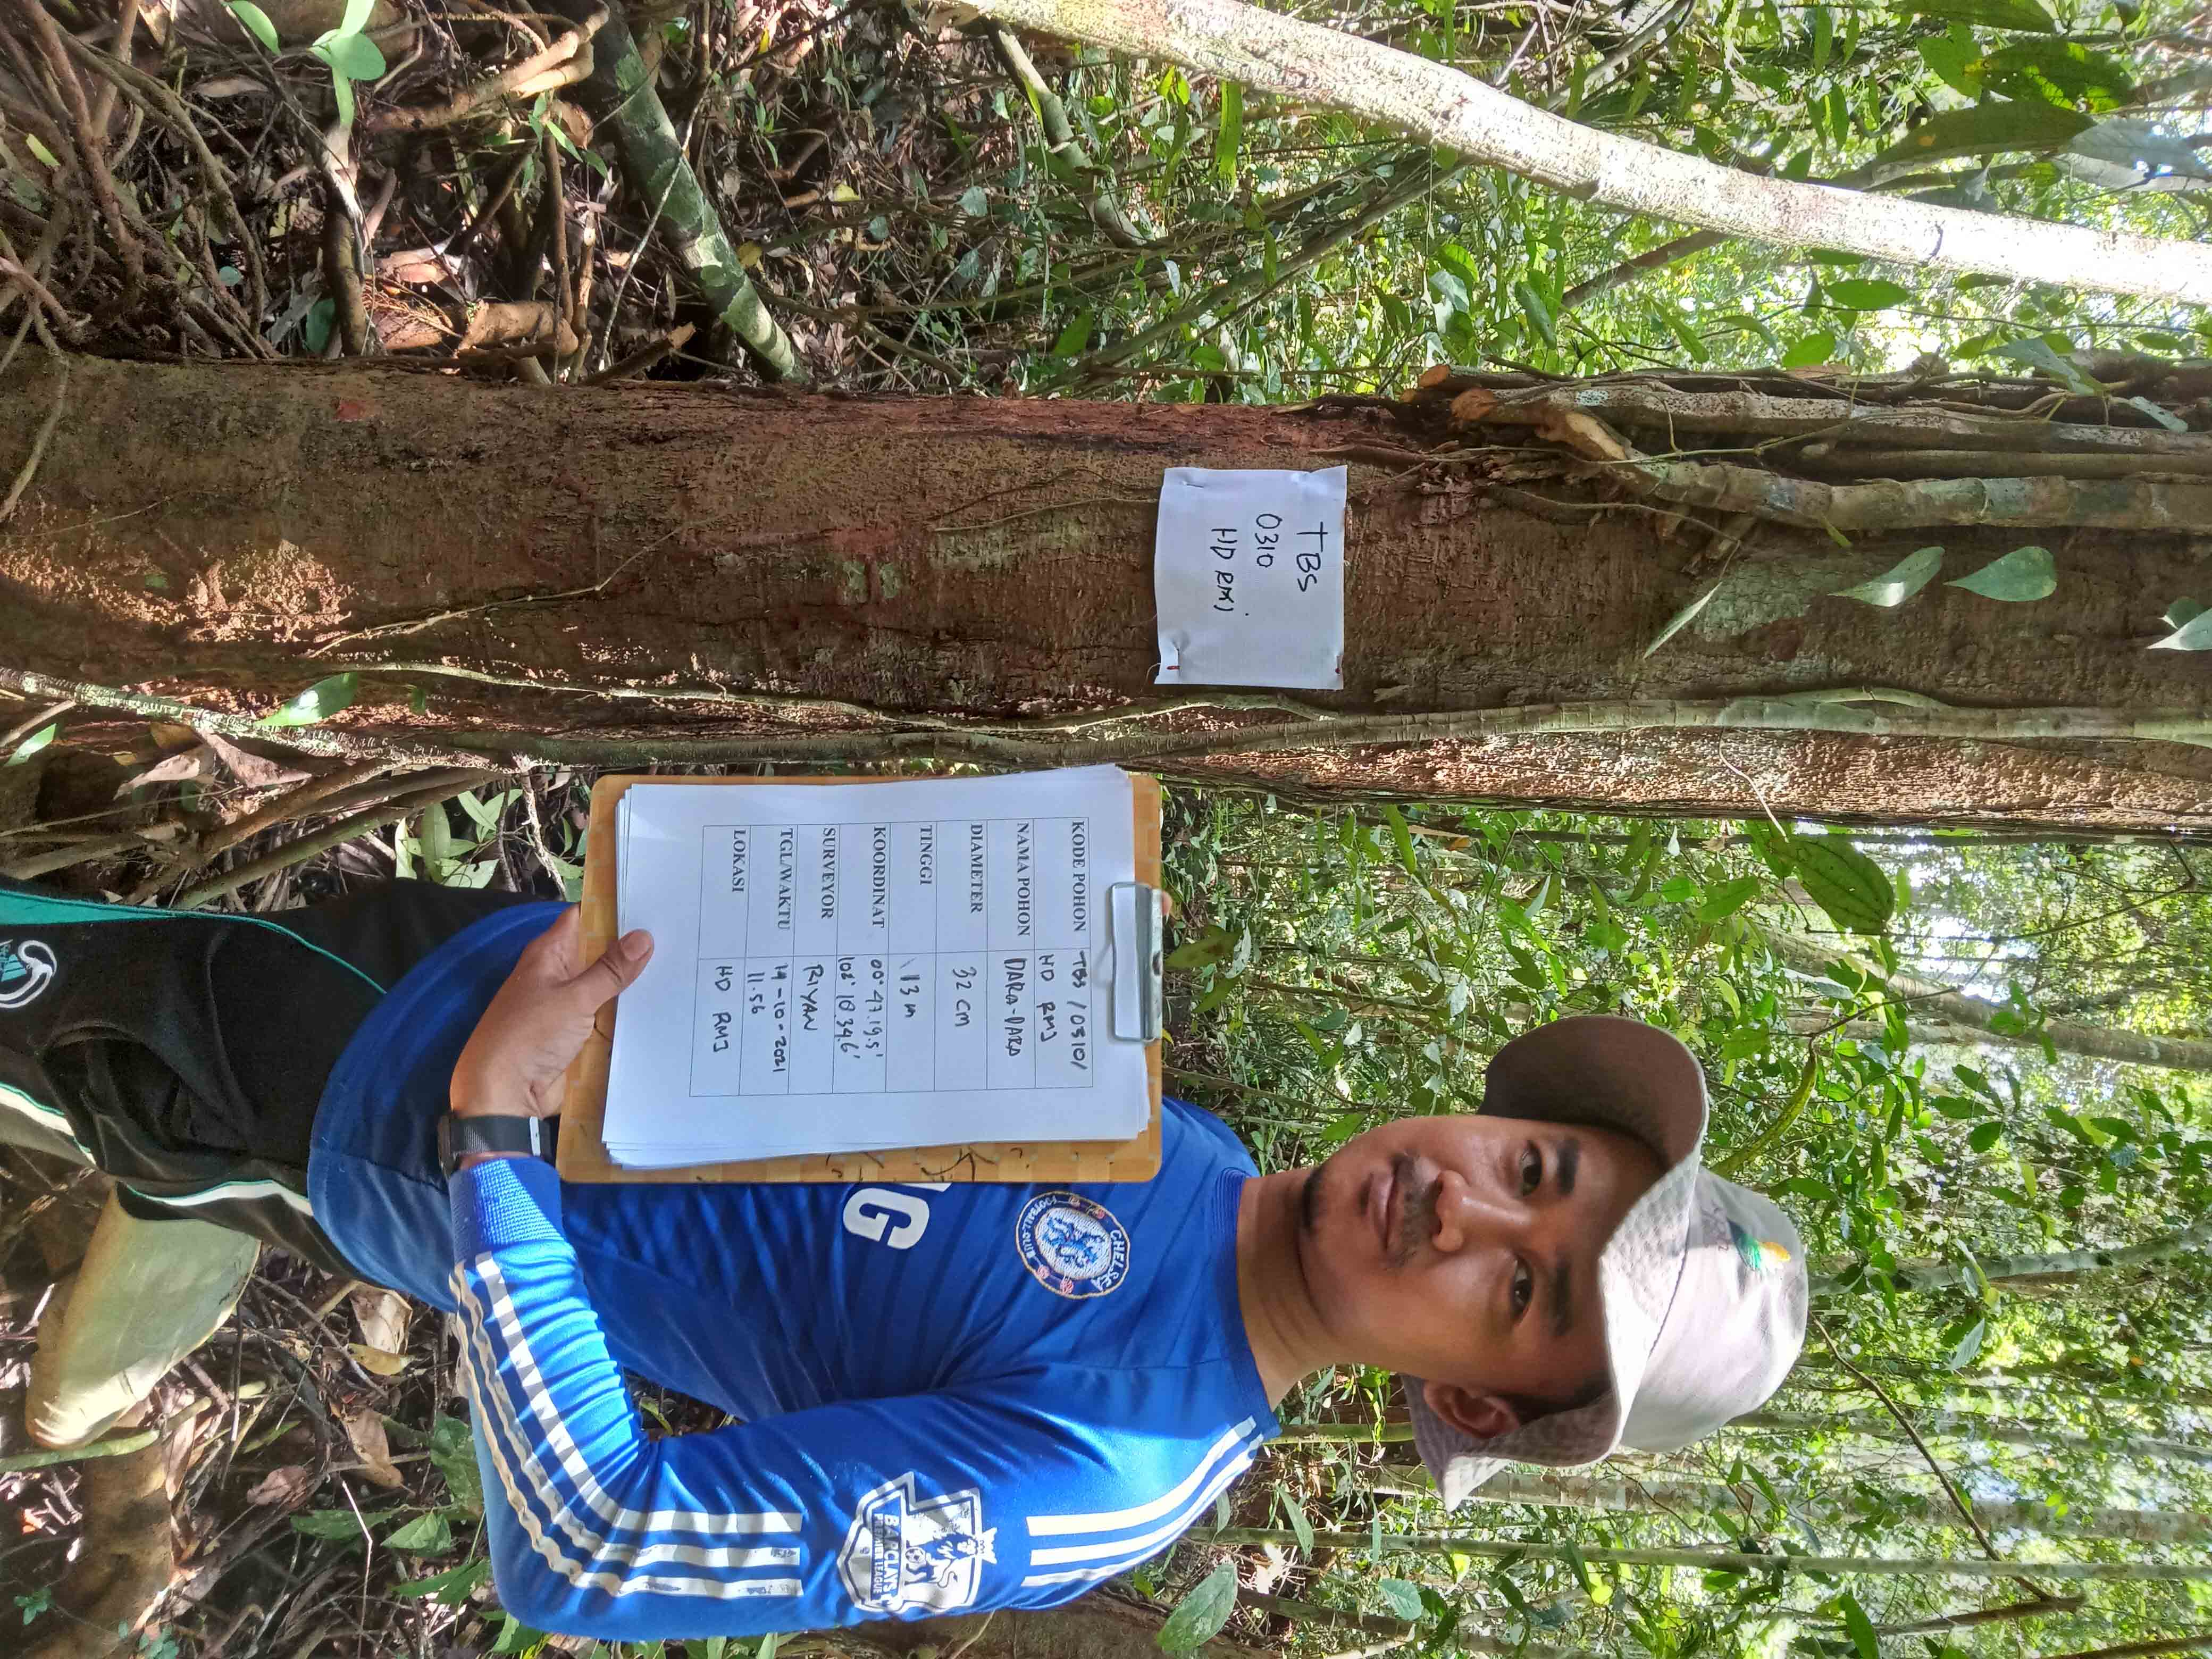 TBS
0310
HD RMJ
KODE POHON TBS /0310/
HD RMJ
NAMA POHON DARA-DARA
DIAMETER 32 CM
TINGGI 13 m
KOORDINAT 00° 47.19.5'
102° 18 34.6'
SURVEYOR RIYAN
TGL/WAKTU 14-10-2021
11.56
LOKASI HD RMJ
CHELSEA
FOOTBALL CLUB
NG
BARCLAYS
PREMIER LEAGUE
adidas